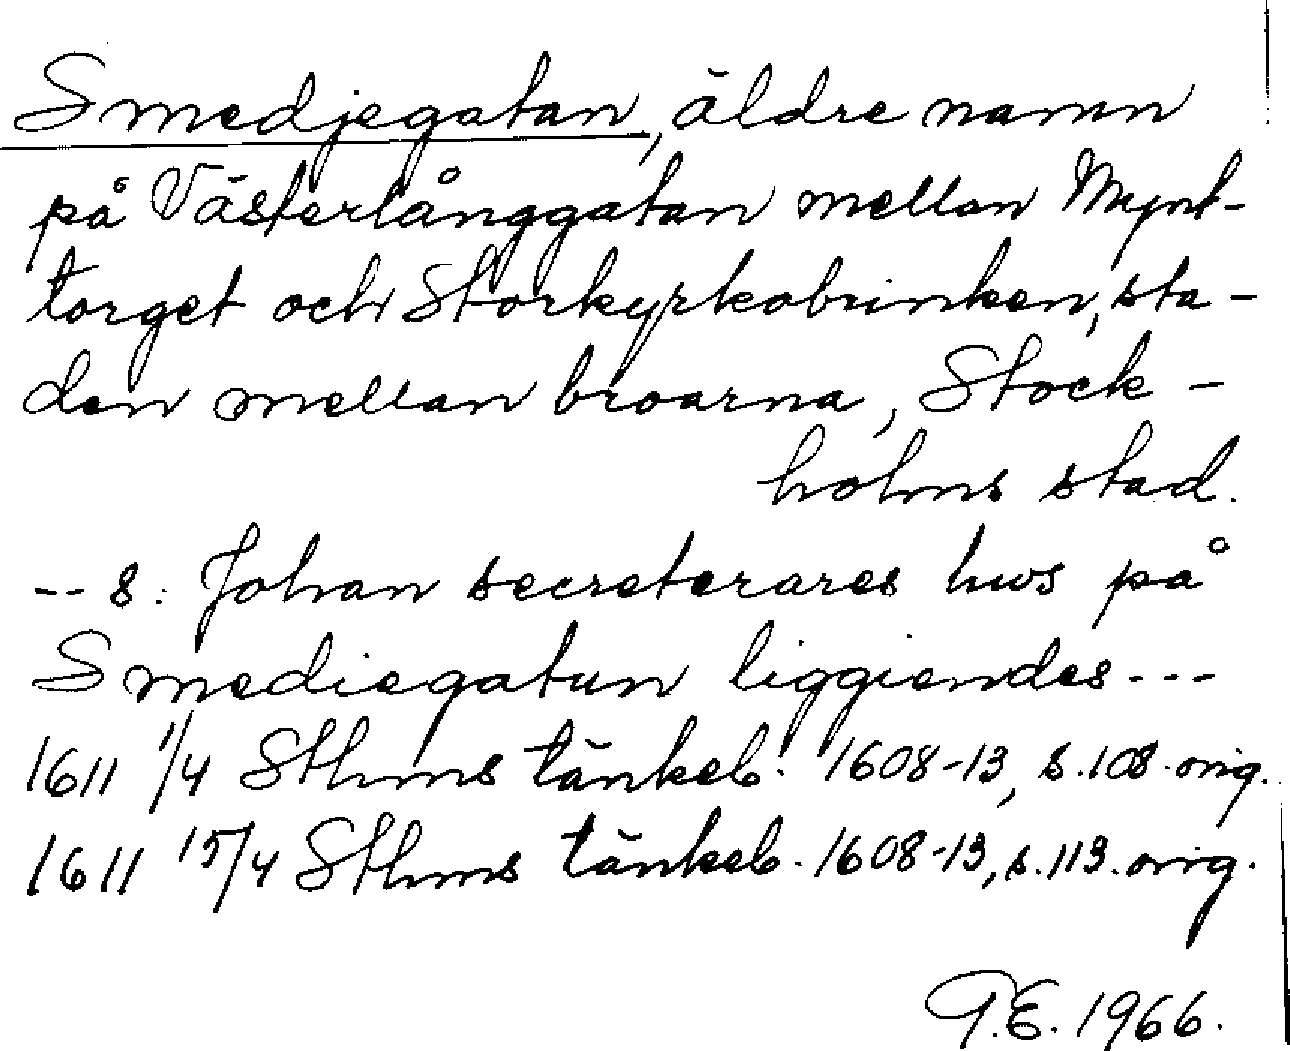 Smedjegatan, äldre namn
på Västerlånggatan mellan Mynt-
torget och Storkyrkobrinken, sta-
den mellan broarna, Stock-
holms stad.
-- s: Johan secreterares hws på
Smediegatun liggiendes ---
1611 1/4 Sthms tänkeb. 1608-13, s. 108. orig.
1611 15/4 Sthms tänkeb. 1608-13, s. 113. orig.
G.E. 1966.